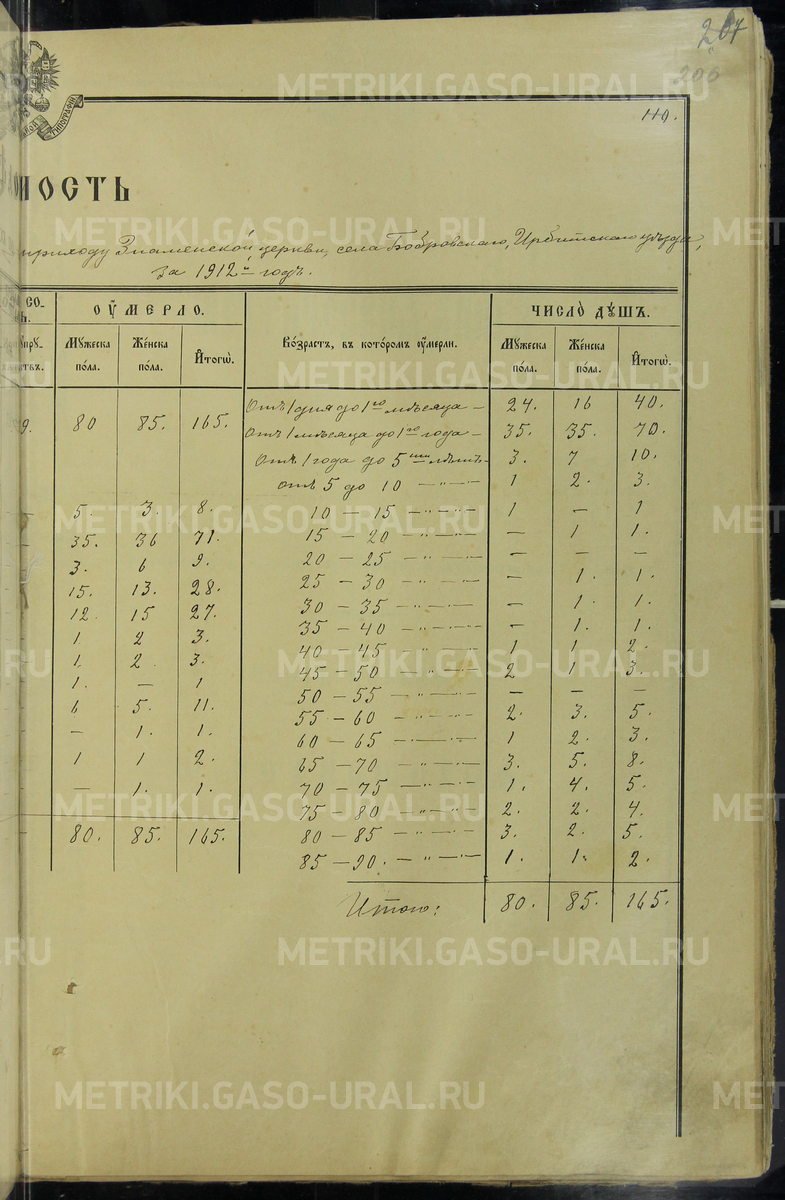 207
206
110.
ТИПОГРАФІЯ
НОСТЬ
приходу Знаменской церкви, села Бобровскаго, Ирбитскаго уѣзда,
за 1912й годъ.
ОУ҆МЕРЛО. ЧИСЛО ДꙊШЪ.
Мꙋжеска пола. Женска пола. Итогѡ. Возрастъ, въ которомъ оу҆мерли. Мꙋжеска пола. Женска пола. Итогѡ.
Отъ 1 дня до 1го мѣсяца — 24. 16 40.
9. 80 85. 165. Отъ 1 мѣсяца до 1го года — 35. 35. 70.
Отъ 1 года до 5ти лѣтъ 3. 7 10.
Отъ 5 до 10 — „ — „ — 1 2. 3.
5. 3. 8. 10 — 15 — „ — „ — 1 — 1
35. 36 71. 15 — 20 — „ — „ — — 1 1.
3. 6 9. 20 — 25 — „ — „ — — — —
15. 13. 28. 25 — 30 — „ — „ — — 1. 1.
12. 15 27. 30 — 35 — „ — „ — — 1. 1.
1 2 3. 35 — 40 — „ — „ — — 1. 1.
1. 2. 3. 40 — 45 — „ — „ — 1 1 2.
1. — 1 45 — 50 — „ — „ — 2 1 3.
6 5. 11. 50 — 55 — „ — „ — — — —
— 1. 1. 55 — 60 — „ — „ — 2. 3. 5.
1 1 2. 60 — 65 — „ — „ — 1 2. 3.
— 1. 1. 65 — 70 — „ — „ — 3. 5. 8.
70 — 75 — „ — „ — 1. 4. 5.
75 — 80 — „ — „ — 2. 2. 4.
80. 85. 165. 80 — 85 — „ — „ — 3. 2. 5.
85 — 90. — „ — „ — 1. 1. 2.
Итого: 80. 85. 165.
METRIKI.GASO-URAL.RU